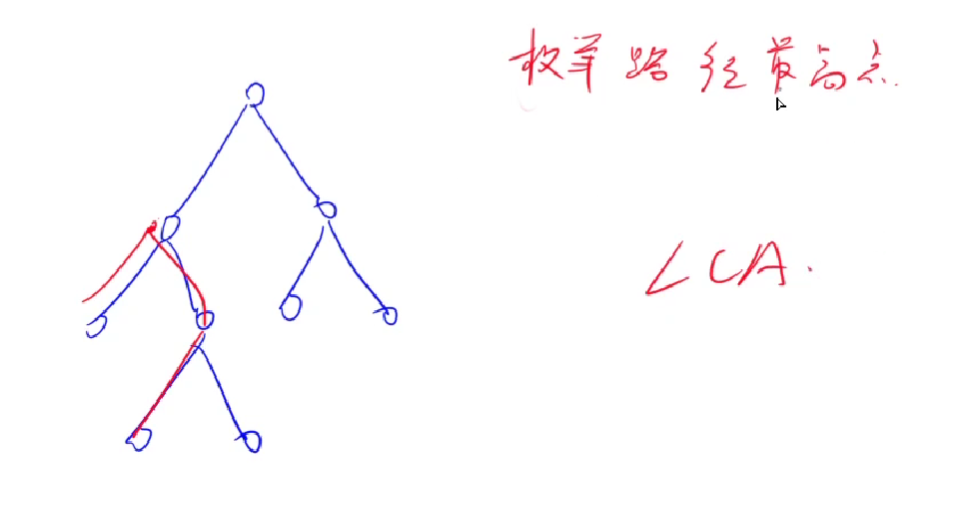 枚举路径最高点.
LCA.